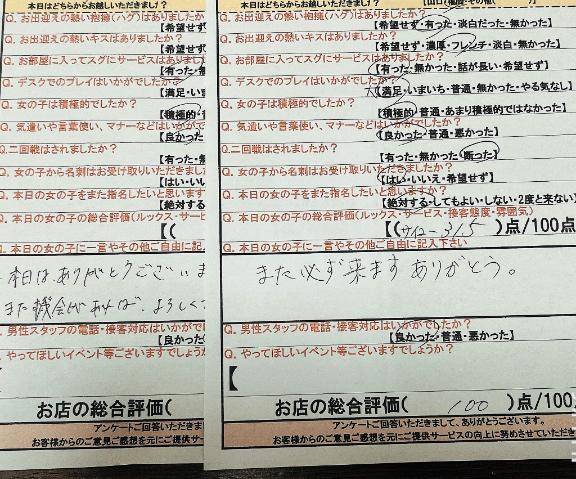 本日はどちらからお越しいただきまし
Q. お出迎えの熱い抱擁(ハグ)はありました
【希望せず
Q. お出迎えの熱いキスはありましたか?
【希望せず
Q. お部屋に入ってスグにサービスはありまし
【有った・無
Q. デスクでのプレイはいかがでしたか
【満足・いま
Q. 女の子は積極的でしたか?
【積極的
Q. 気遣いや言葉使い、マナーなどはいかがで
【良かった
Q.二回戦はされましたか?
【有った・無
Q. 女の子から名刺はお受け取りいただきまし
【はい・いい
Q. 本日の女の子をまた指名したいと思います
【絶対する
Q.本日の女の子の総合評価(ルックス・サービ
【(
Q.本日の女の子に一言やその他ご自由に記入
本日は、ありがとうございま
また機会があれば、よろしく
Q. 男性スタッフの電話・接客対応はいかがで
【良かった
Q. やってほしいイベント等ございますでしょうか
【
お店の総合評価(
アンケートご回答いただきま
お客様からのご意見ご感想を元にご提供サー
本日はどちらからお越しいただきましたか?
Q. お出迎えの熱い抱擁(ハグ)はありましたか?
【希望せず・有った・淡白だった・無かった】
Q. お出迎えの熱いキスはありましたか?
【希望せず・濃厚・フレンチ・淡白・無かった】
Q. お部屋に入ってスグにサービスはありましたか?
【有った・無かった・話が長い・希望せず】
Q. デスクでのプレイはいかがでしたか?
【満足・いまいち・普通・無かった・やる気なし】
Q. 女の子は積極的でしたか?
【積極的・普通・あまり積極的ではなかった】
Q. 気遣いや言葉使い、マナーなどはいかがでしたか?
【良かった・普通・悪かった】
Q.二回戦はされましたか?
【有った・無かった・断った】
Q. 女の子から名刺はお受け取りいただきましたか?
【はい・いいえ・希望せず】
Q. 本日の女の子をまた指名したいと思いますか?
【絶対する・してもよい・しない・2度と来ない】
Q.本日の女の子の総合評価(ルックス・サービス・接客態度・雰囲気)
【( サイコー 315 )点/100点
Q.本日の女の子に一言やその他ご自由に記入下さい
また必ず来ます ありがとう。
Q. 男性スタッフの電話・接客対応はいかがでしたか?
【良かった・普通・悪かった】
Q. やってほしいイベント等ございますでしょうか?
【
お店の総合評価( 100 )点/100点
アンケートご回答いただきまして、ありがとうございます。
お客様からのご意見ご感想を元にご提供サービスの向上に努めさせていただき